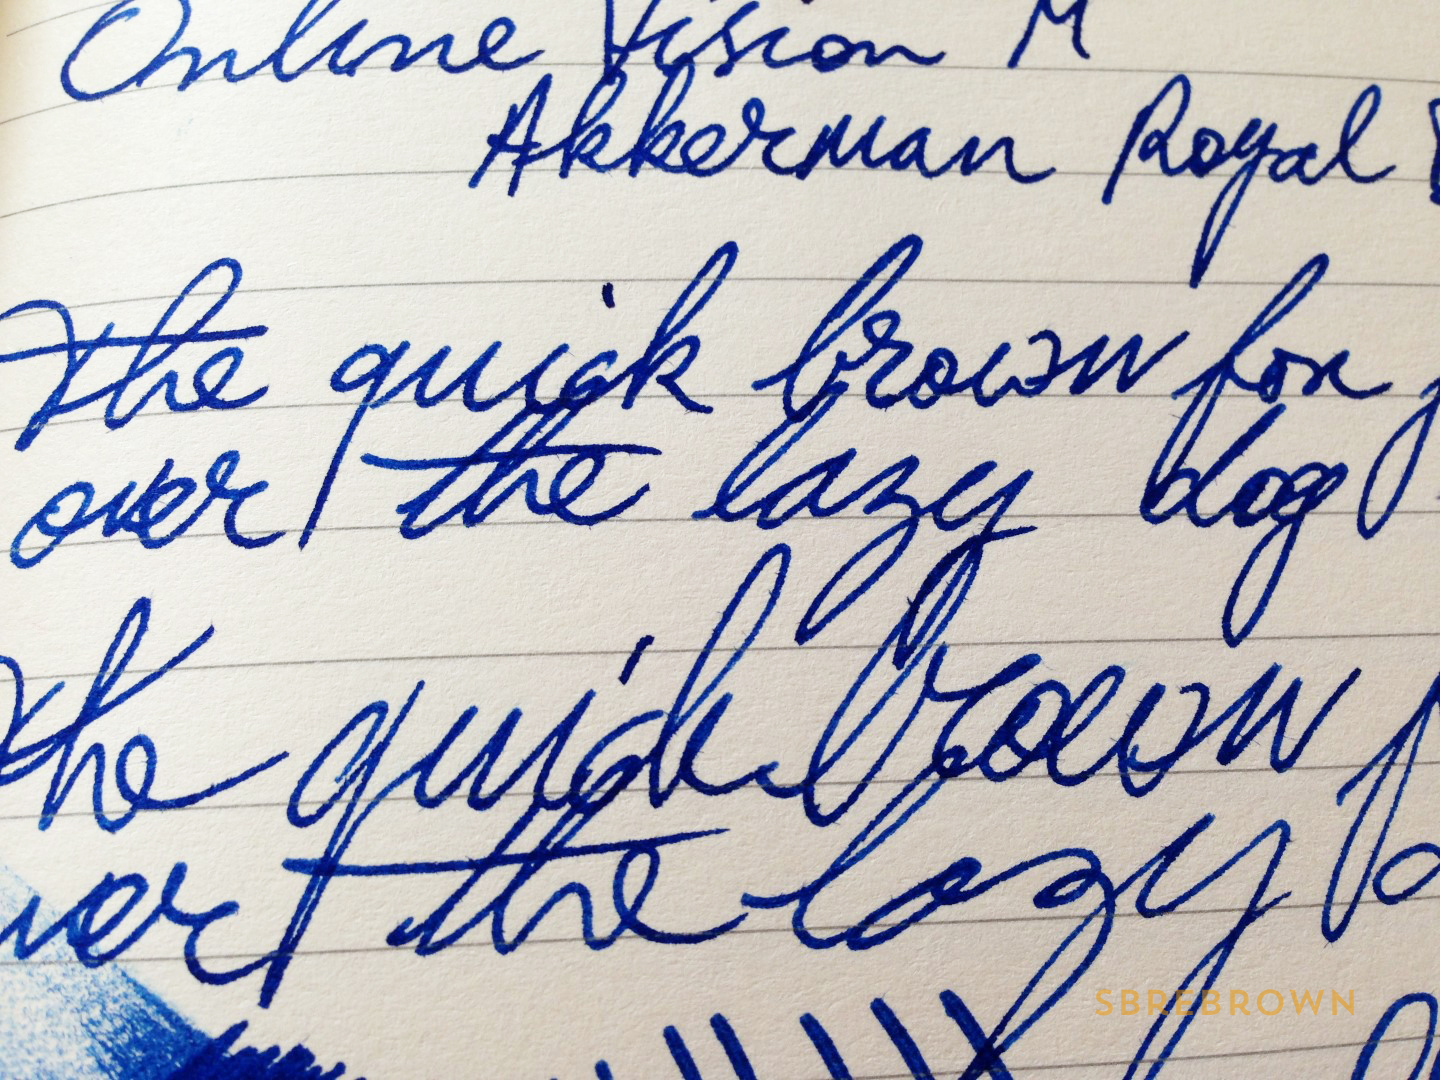 Online Vision M
Akkerman Royal
The quick brown fox
over the lazy dog
The quick brown
over the lazy
SBREBROWN